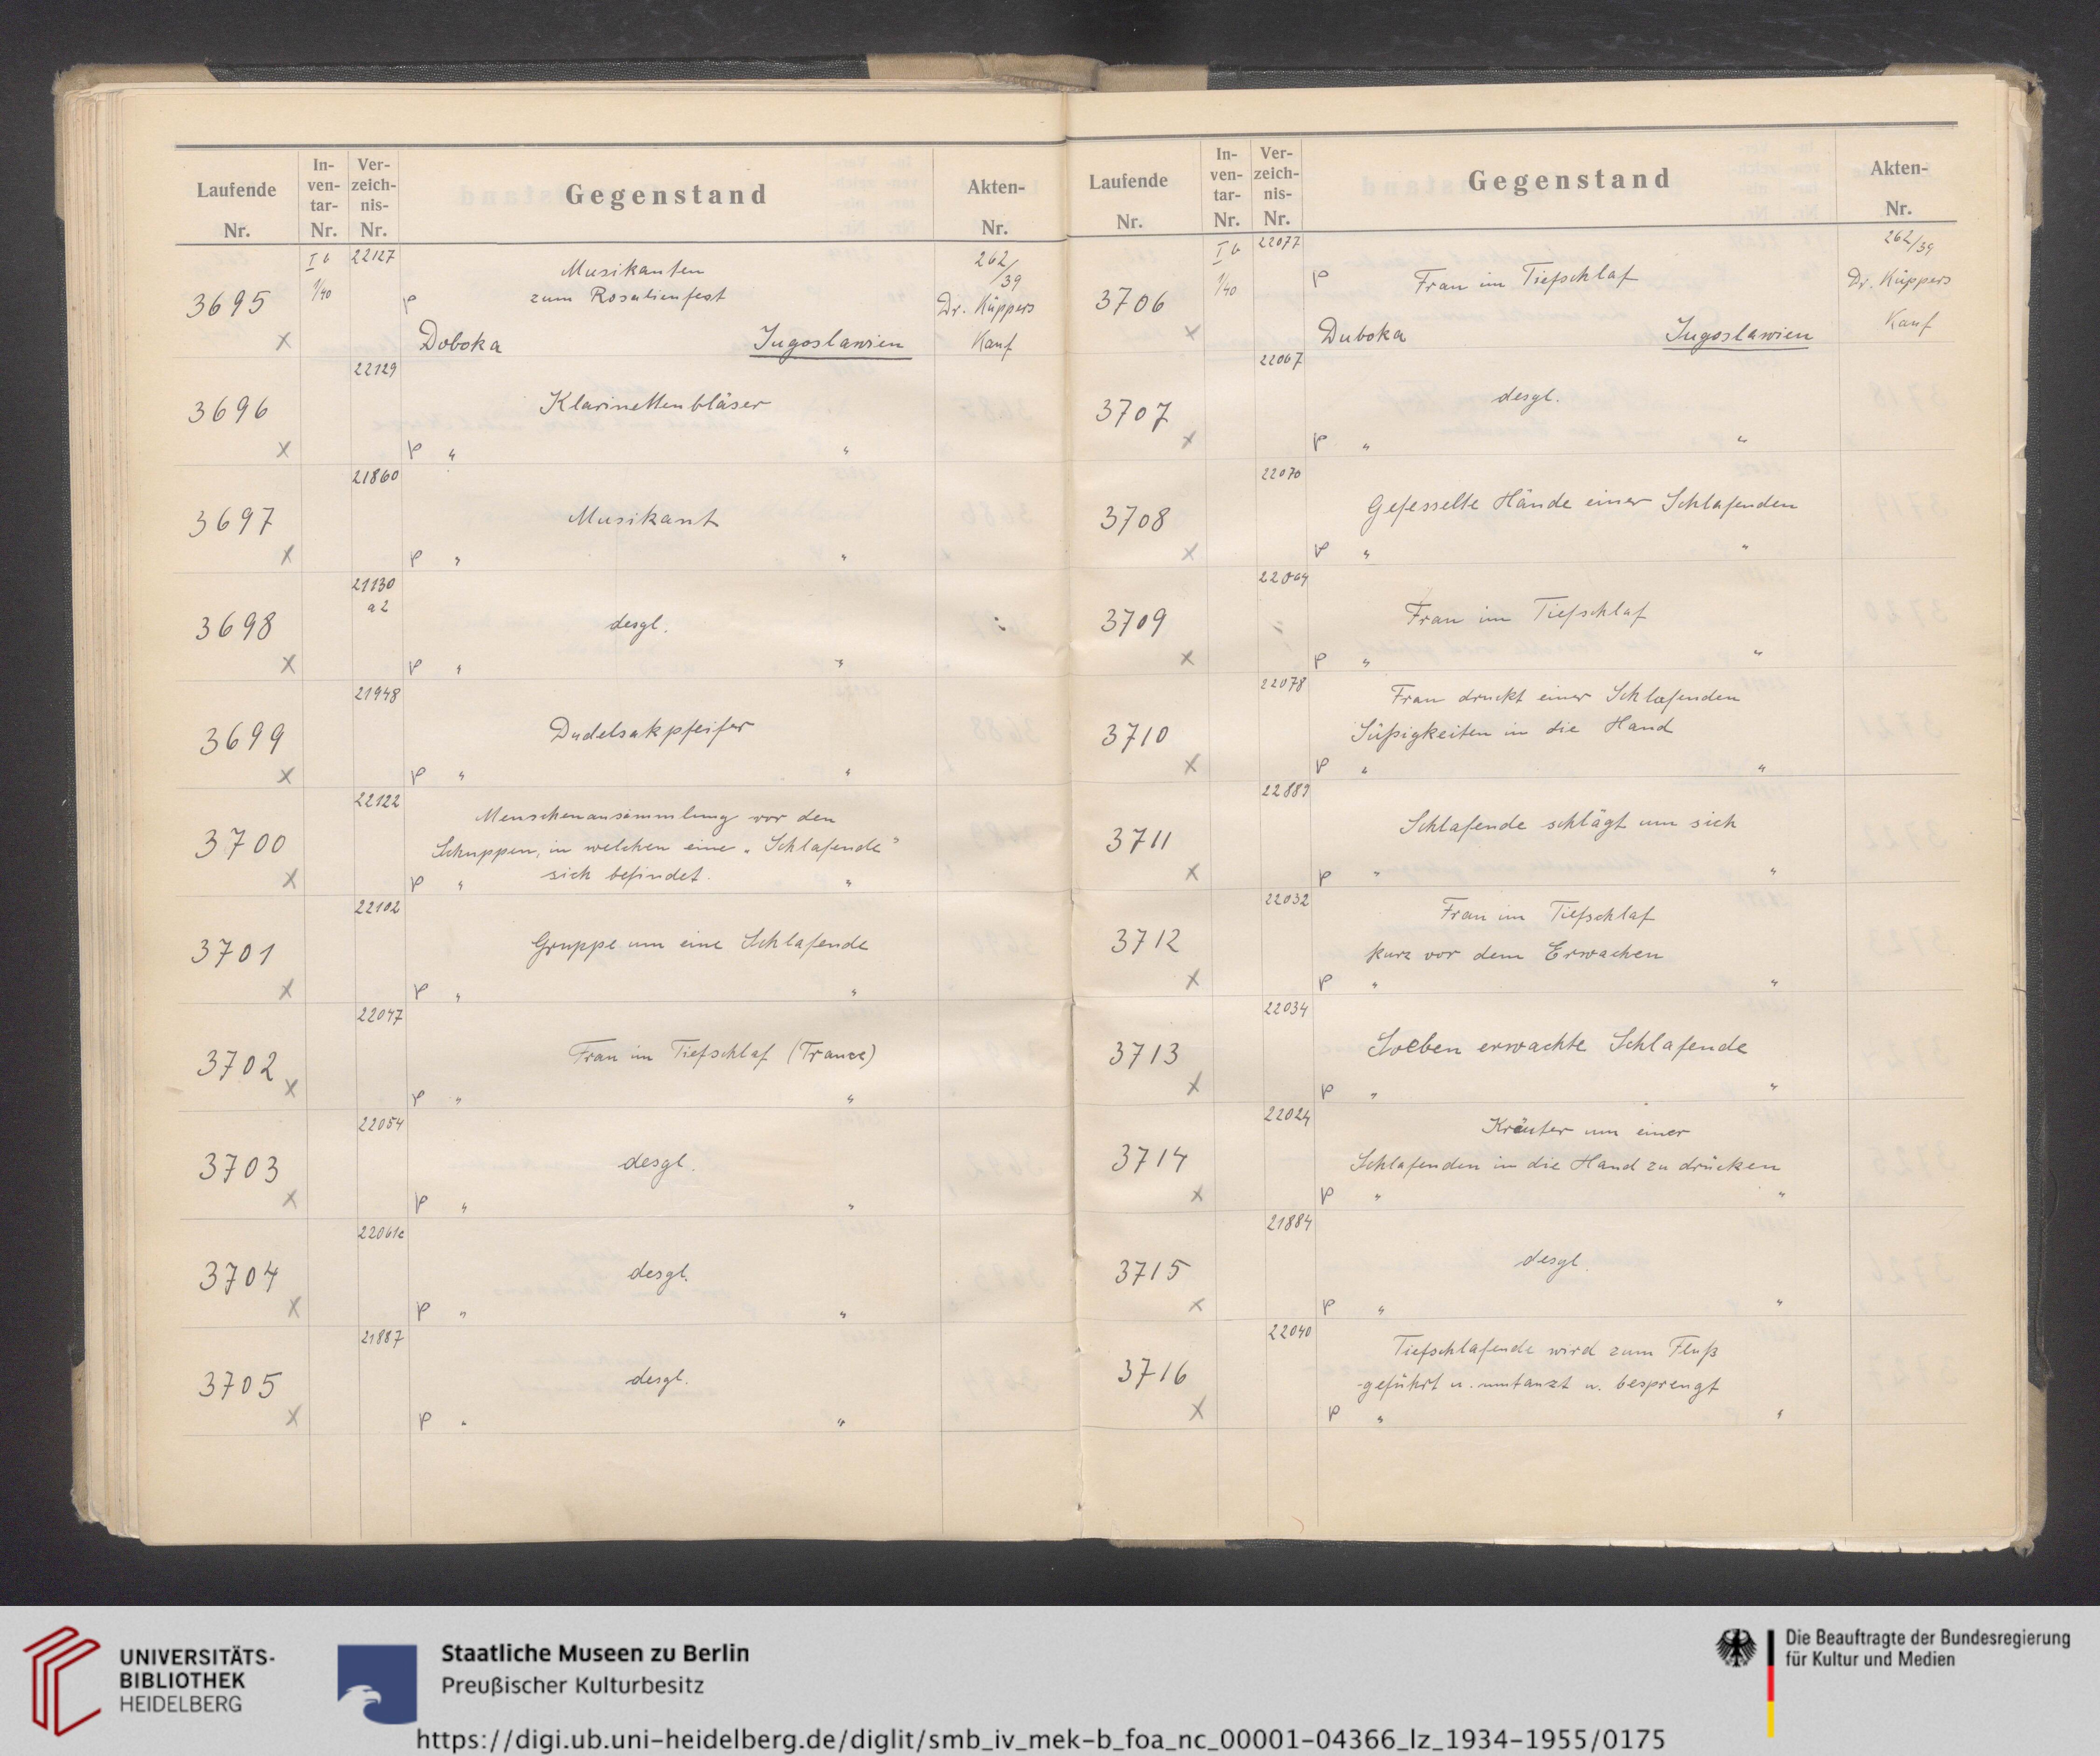 Laufende Nr.
In-ven-tar-Nr.
Ver-zeich-nis-Nr.
Gegenstand
Akten-Nr.
3695 x
I b 1/40
22127
Musikanten
zum Rosalienfest
P Doboka Jugoslawien
262/39
Dr. Küppers
Kauf
3696 x
22129
Klarinettenbläser
P " "
3697 x
21860
Musikant
P " "
3698 x
21130
a2
desgl.
P " "
3699 x
21948
Dudelsakpfeifer
P " "
3700 x
22122
Menschenansammlung vor den
Schuppen, in welchen eine "Schlafende"
sich befindet.
P " "
3701 x
22102
Gruppe um eine Schlafende
P " "
3702 x
22047
Frau im Tiefschlaf (Trance)
P " "
3703 x
22054
desgl.
P " "
3704 x
22061c
desgl.
P " "
3705 x
21887
desgl.
P " "
Laufende Nr.
In-ven-tar-Nr.
Ver-zeich-nis-Nr.
Gegenstand
Akten-Nr.
3706 x
I b 1/40
22077
P Frau im Tiefschlaf
Duboka Jugoslawien
262/39
Dr. Küppers
Kauf
3707 x
22067
desgl.
P " "
3708 x
22070
Gefesselte Hände einer Schlafenden
P " "
3709 x
22064
Frau im Tiefschlaf
P " "
3710 x
22078
Frau druckt einer Schlafenden
Süßigkeiten in die Hand
P " "
3711 x
22889
Schlafende schlägt um sich
P " "
3712 x
22032
Frau im Tiefschlaf
kurz vor dem Erwachen
P " "
3713 x
22034
Soeben erwachte Schlafende
P " "
3714 x
22024
Kräuter um einer
Schlafenden in die Hand zu drücken
P " "
3715 x
21884
desgl.
P " "
3716 x
22040
Tiefschlafende wird zum Fluß
geführt u. umtanzt u. besprengt
P " "
UNIVERSITÄTS-
BIBLIOTHEK
HEIDELBERG
Staatliche Museen zu Berlin
Preußischer Kulturbesitz
Die Beauftragte der Bundesregierung
für Kultur und Medien
https://digi.ub.uni-heidelberg.de/diglit/smb_iv_mek-b_foa_nc_00001-04366_lz_1934-1955/0175